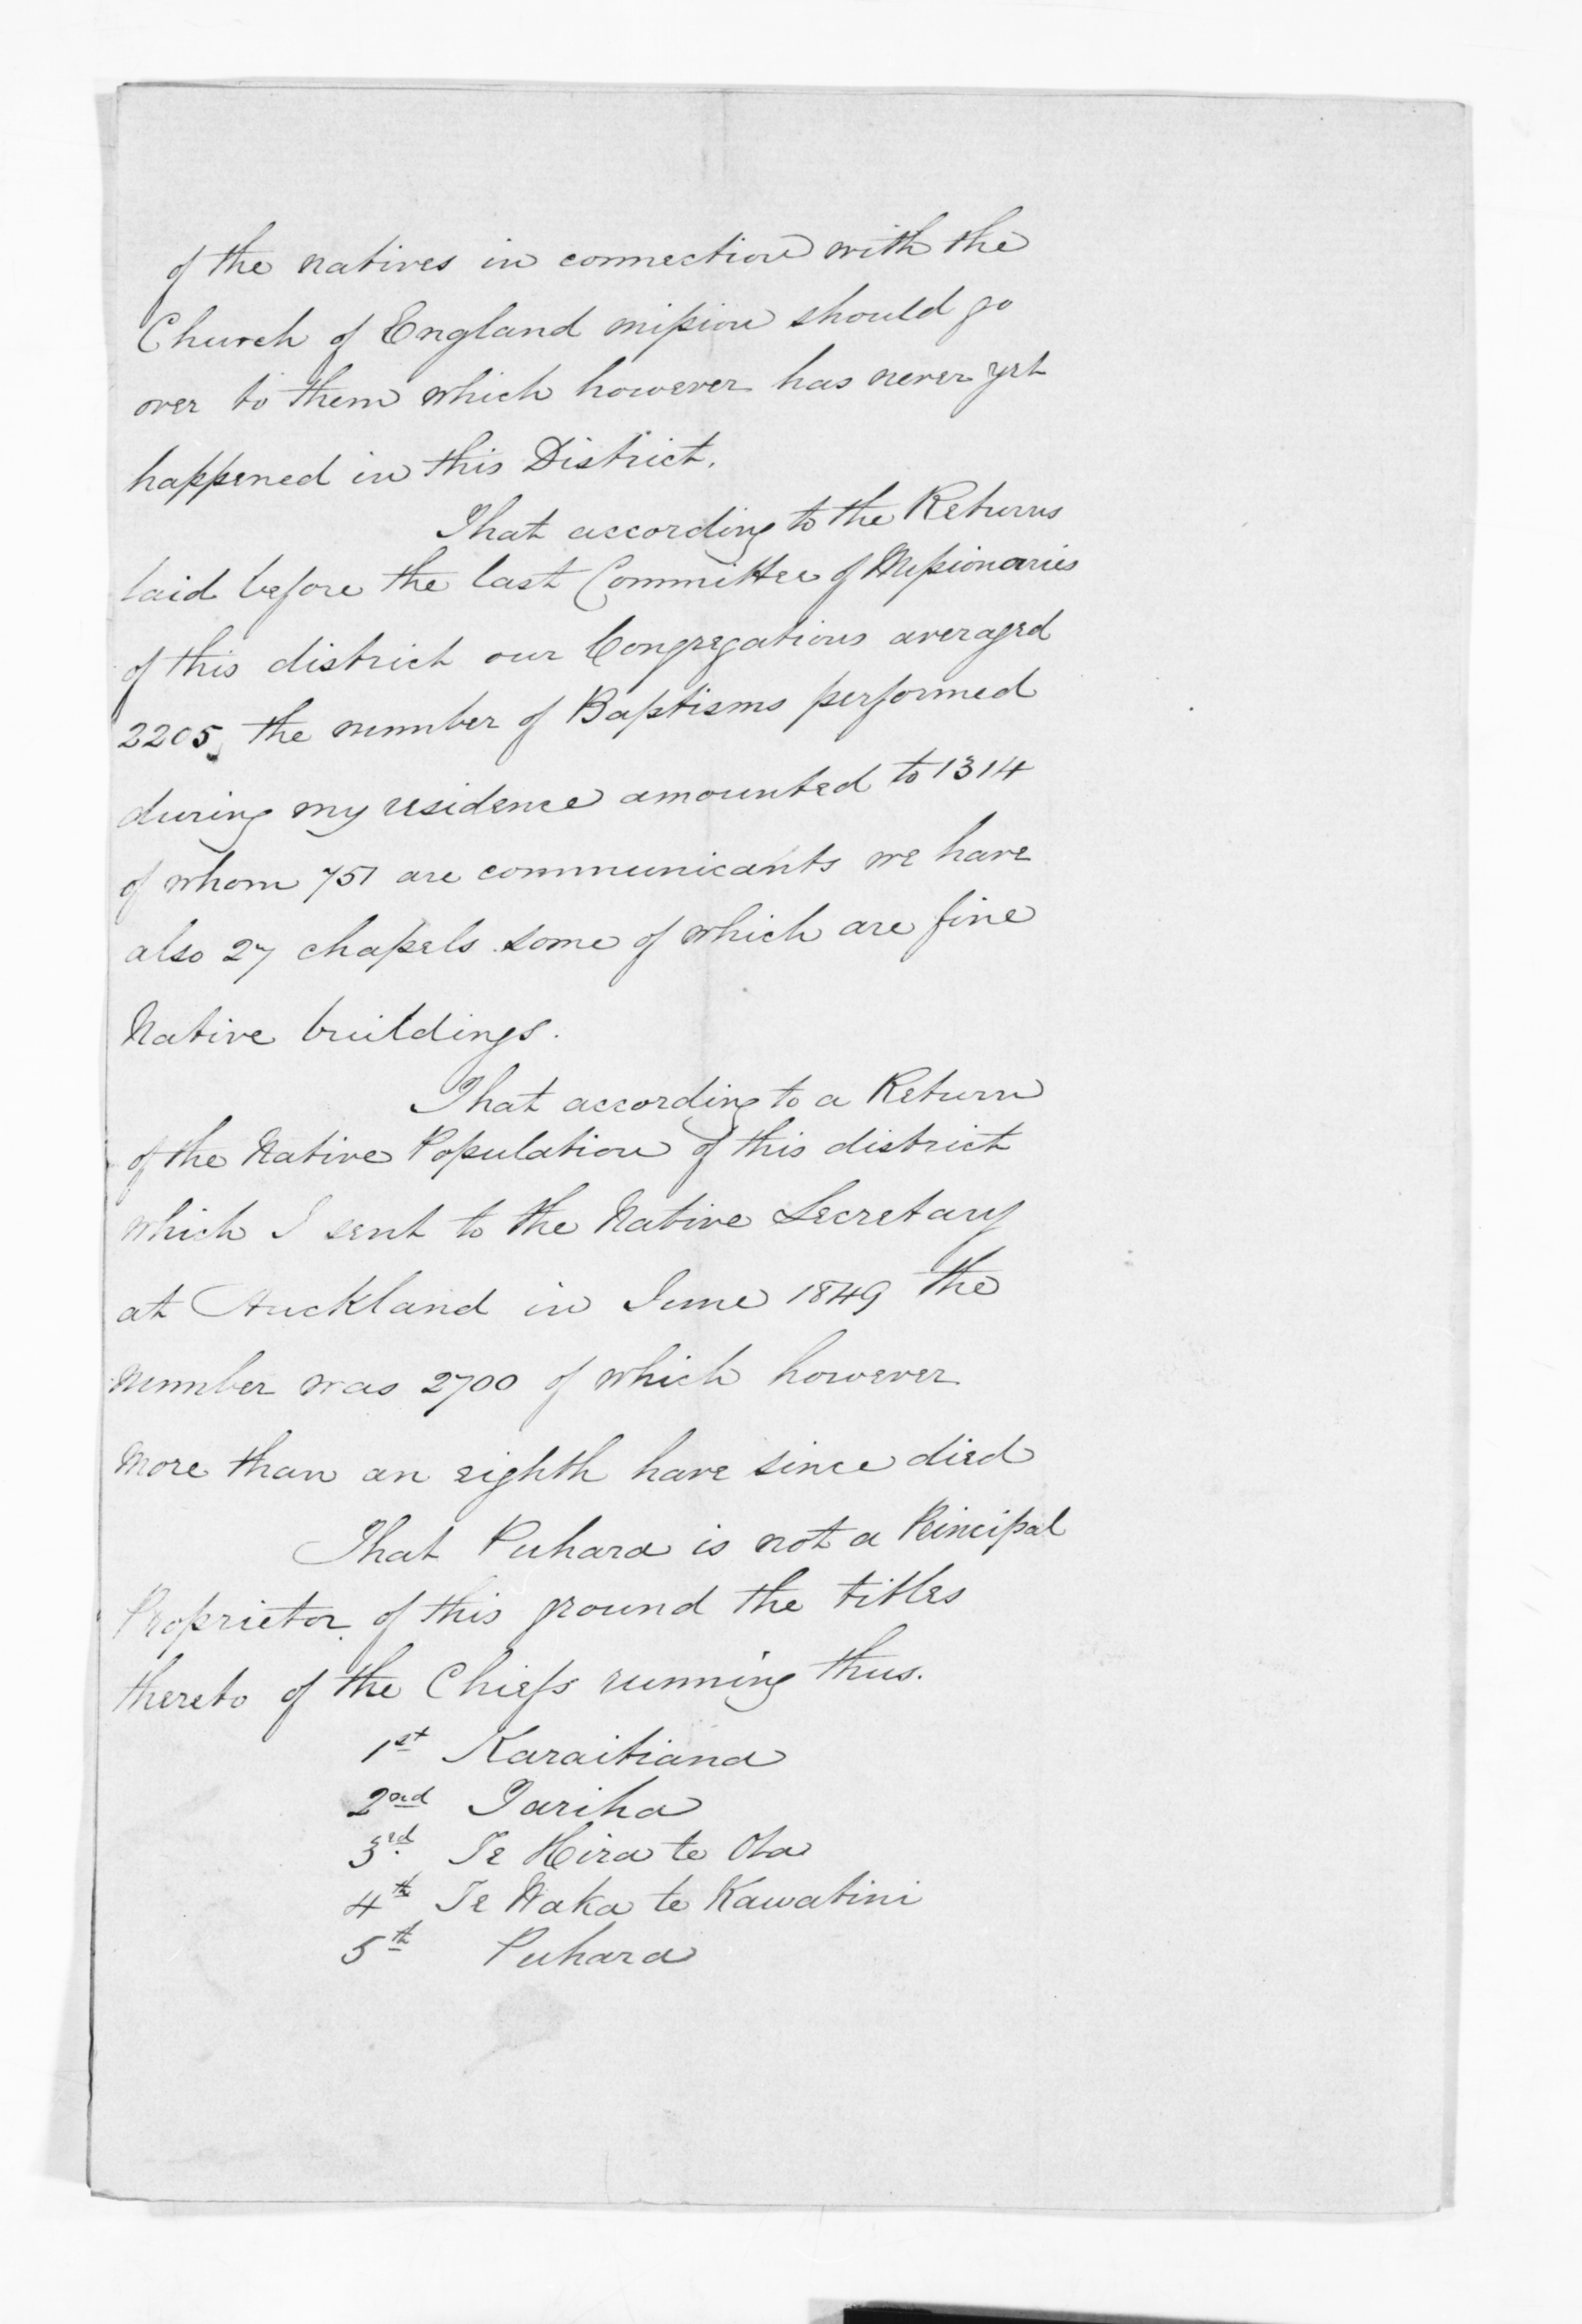 of the natives in connection with the
Church of England mission should go
over to them which however has never yet
happened in this District.
That according to the Returns
laid before the last Committee of Missionaries
of this district our Congregations averaged
2205, the number of Baptisms performed
during my residence amounted to 1314
of whom 751 are communicants we have
also 27 chapels some of which are fine
Native buildings.
That according to a Return
of the Native Population of this district
which I sent to the Native Secretary
at Auckland in June 1849 the
number was 2700 of which however
more than an eighth have since died
That Puhara is not a Principal
Proprietor of this ground the titles
thereto of the Chiefs running thus.
1st Karaitiana
2nd Tariha
3rd. Te Hira te Ota
4th Te Waka te Kawatini
5th Puhara